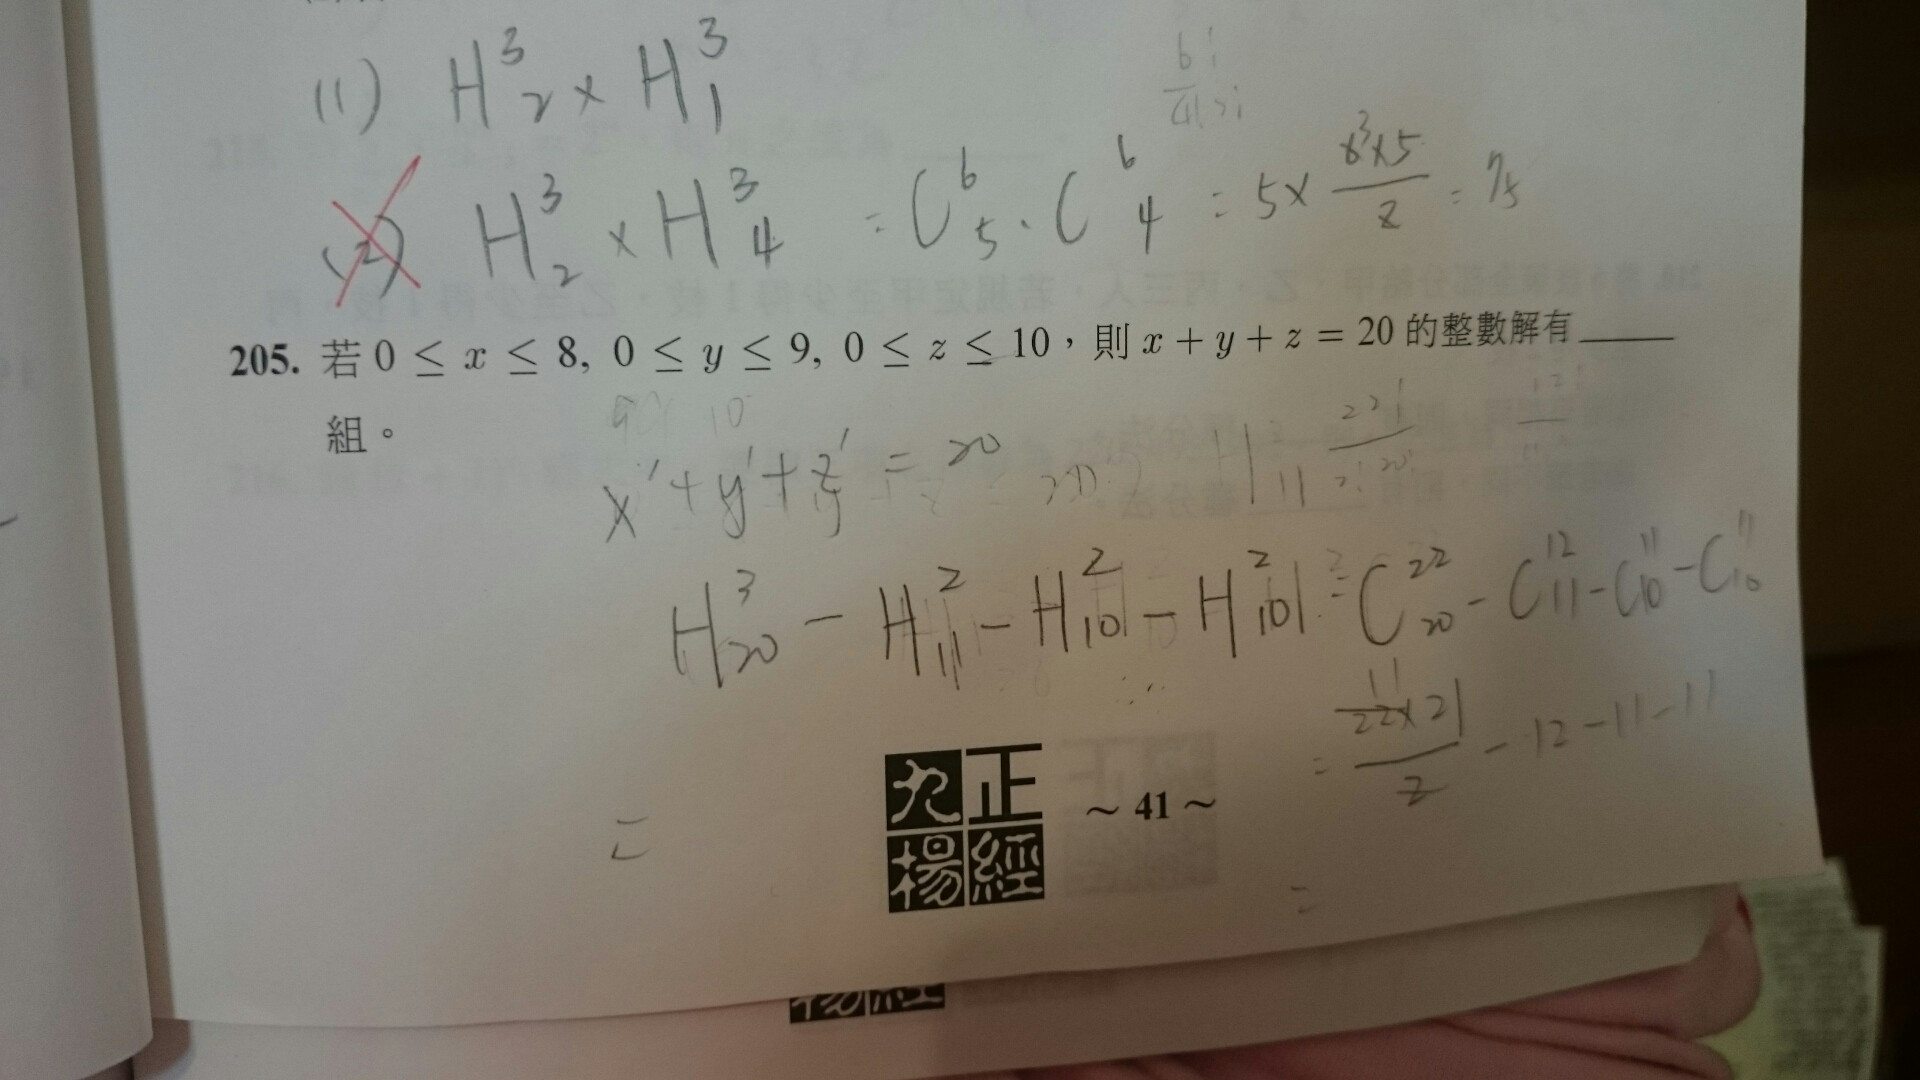 (1) H³₂ × H³₁
6!
4!2!
(2) H³₂ × H³₄ = C⁶₅ · C⁶₄ = 5 × 6³×5 / 2 = 75
205. 若 0 ≤ x ≤ 8, 0 ≤ y ≤ 9, 0 ≤ z ≤ 10，則 x + y + z = 20 的整數解有
組。
x' + y' + z' = 20
22!
2! 20!
H³₂₀ − H²₁₁ − H²₁₀ − H²₁₀ = C²²₂₀ − C¹²₁₁ − C¹¹₁₀ − C¹¹₁₀
= 11 22×21 / 2 − 12 − 11 − 11
=
正
九
經
楊
~ 41 ~
=
楊經